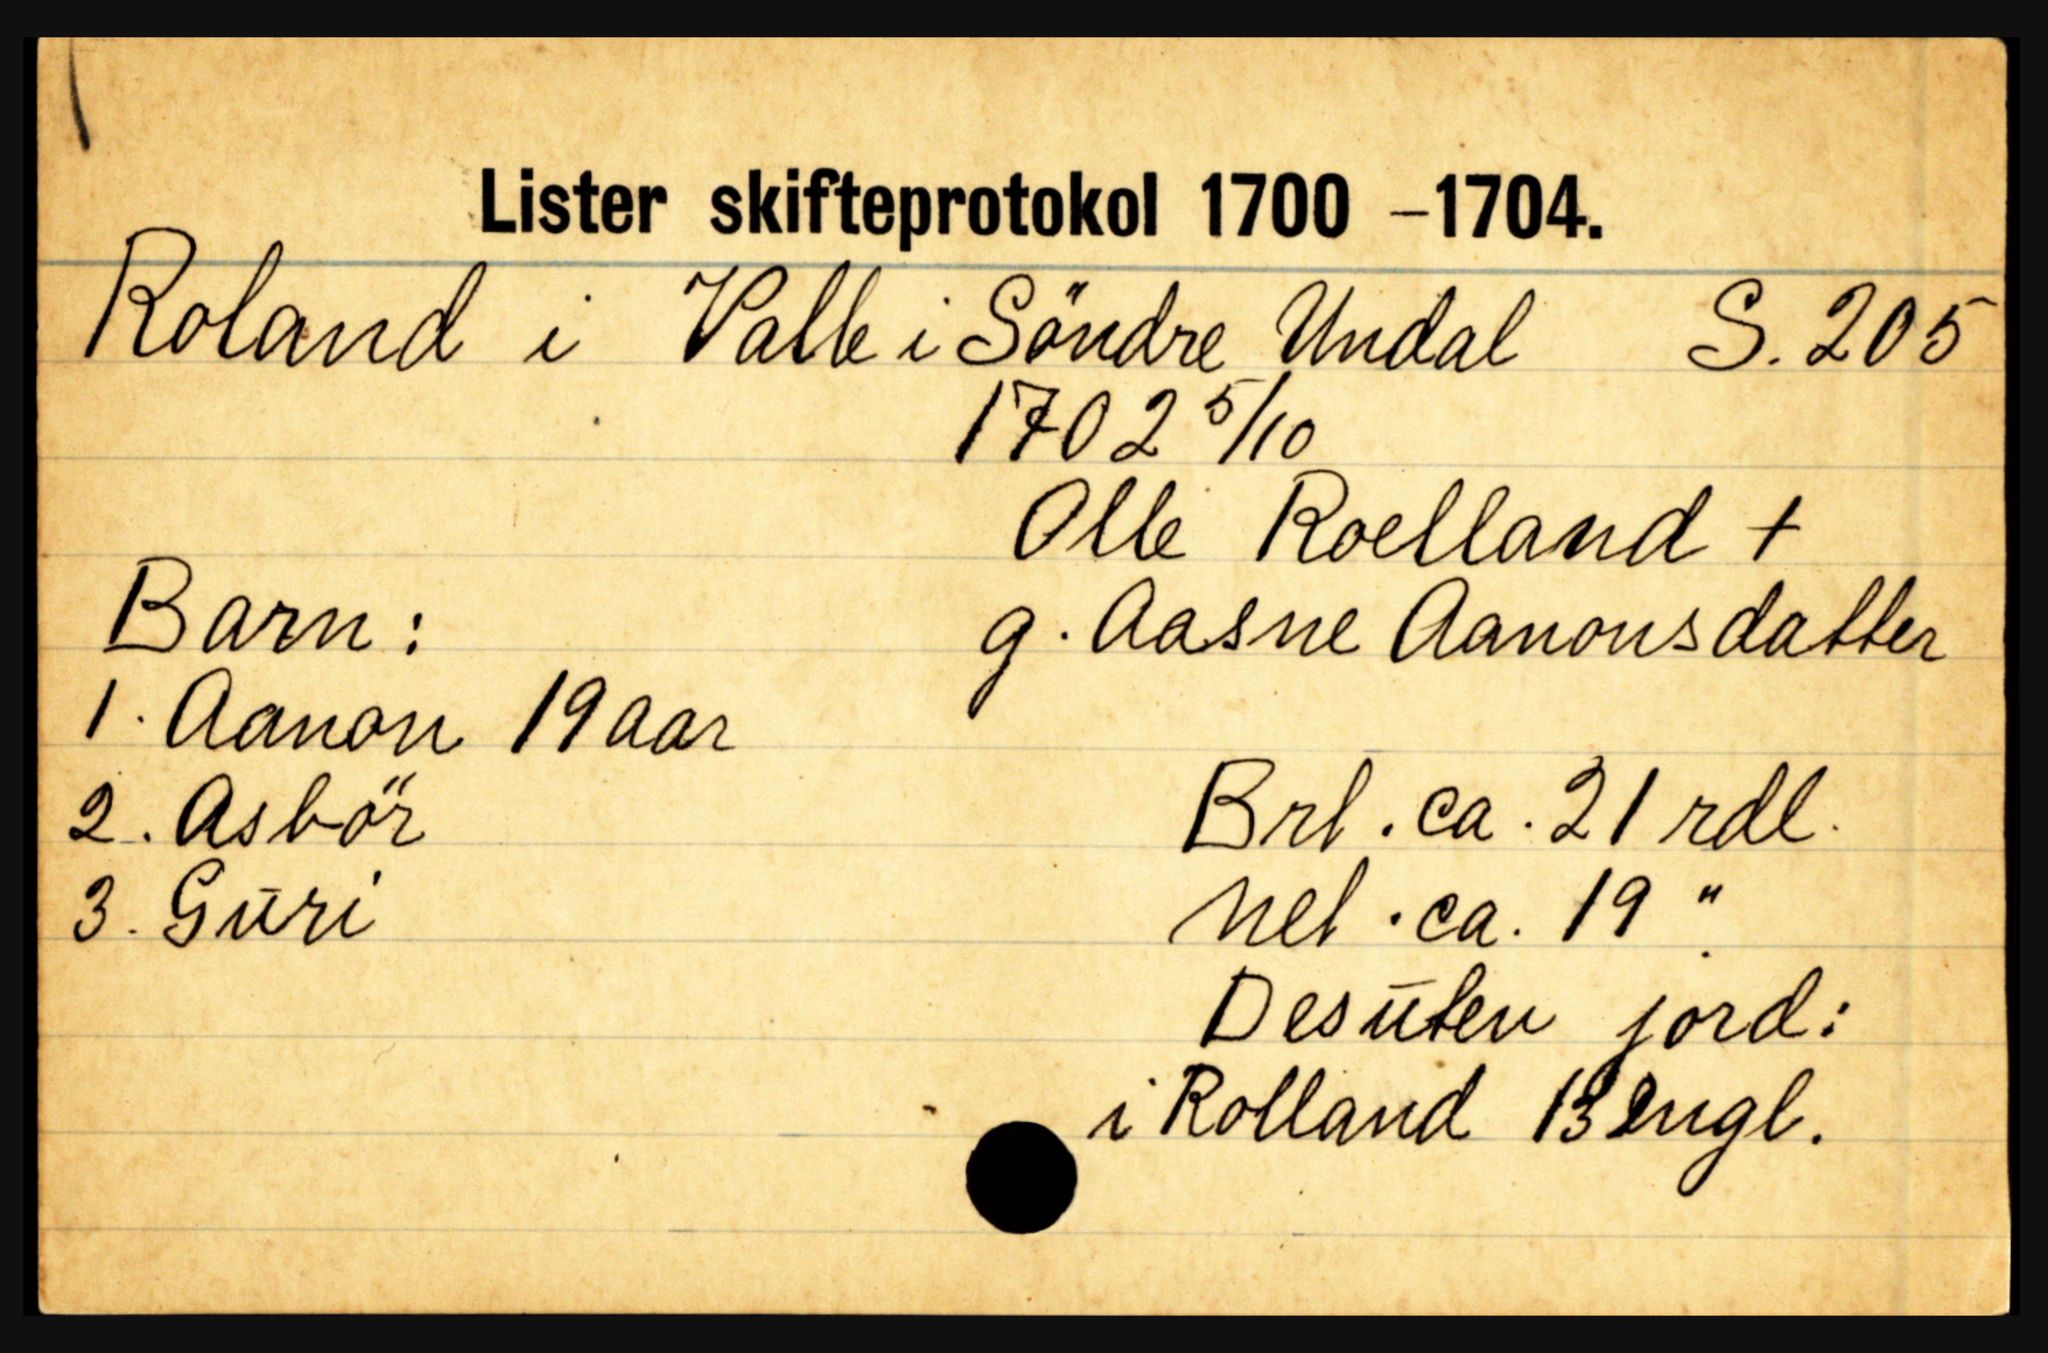 Lister skifteprotokol 1700 – 1704.
Roland i Valle i Söndre Undal S. 205
1702 5/10
Olle Roelland +
Barn: g. Aasne Aanonsdatter
1. Aanon 19 aar
2. Asbör Brt. ca. 21 rdl.
3. Guri Net. ca. 19 "
Desuten jord:
i Rolland 13 engl.